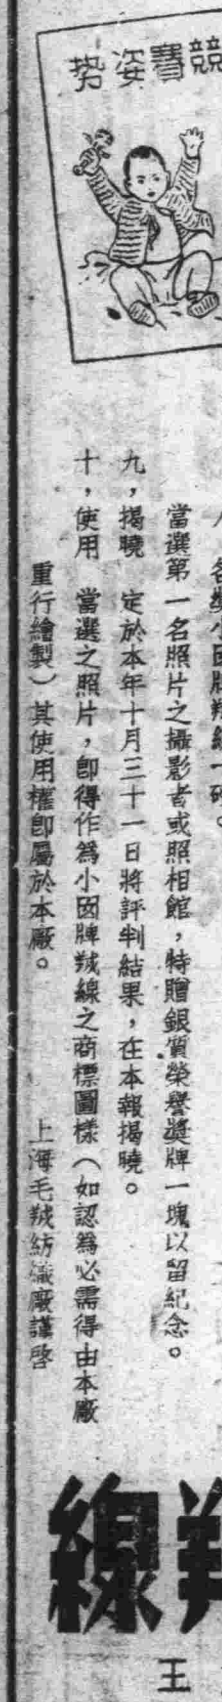 競賽姿勢
各獎小囡牌羢線一磅。
當選第一名照片之攝影者或照相館，特贈銀質榮譽奬牌一塊以留紀念。
九，揭曉　定於本年十月三十一日將評判結果，在本報揭曉。
十，使用　當選之照片，卽得作爲小囡牌羢線之商標圖樣（如認爲必需得由本廠
重行繪製）其使用權卽屬於本廠。
上海毛羢紡織廠謹啓
線
王